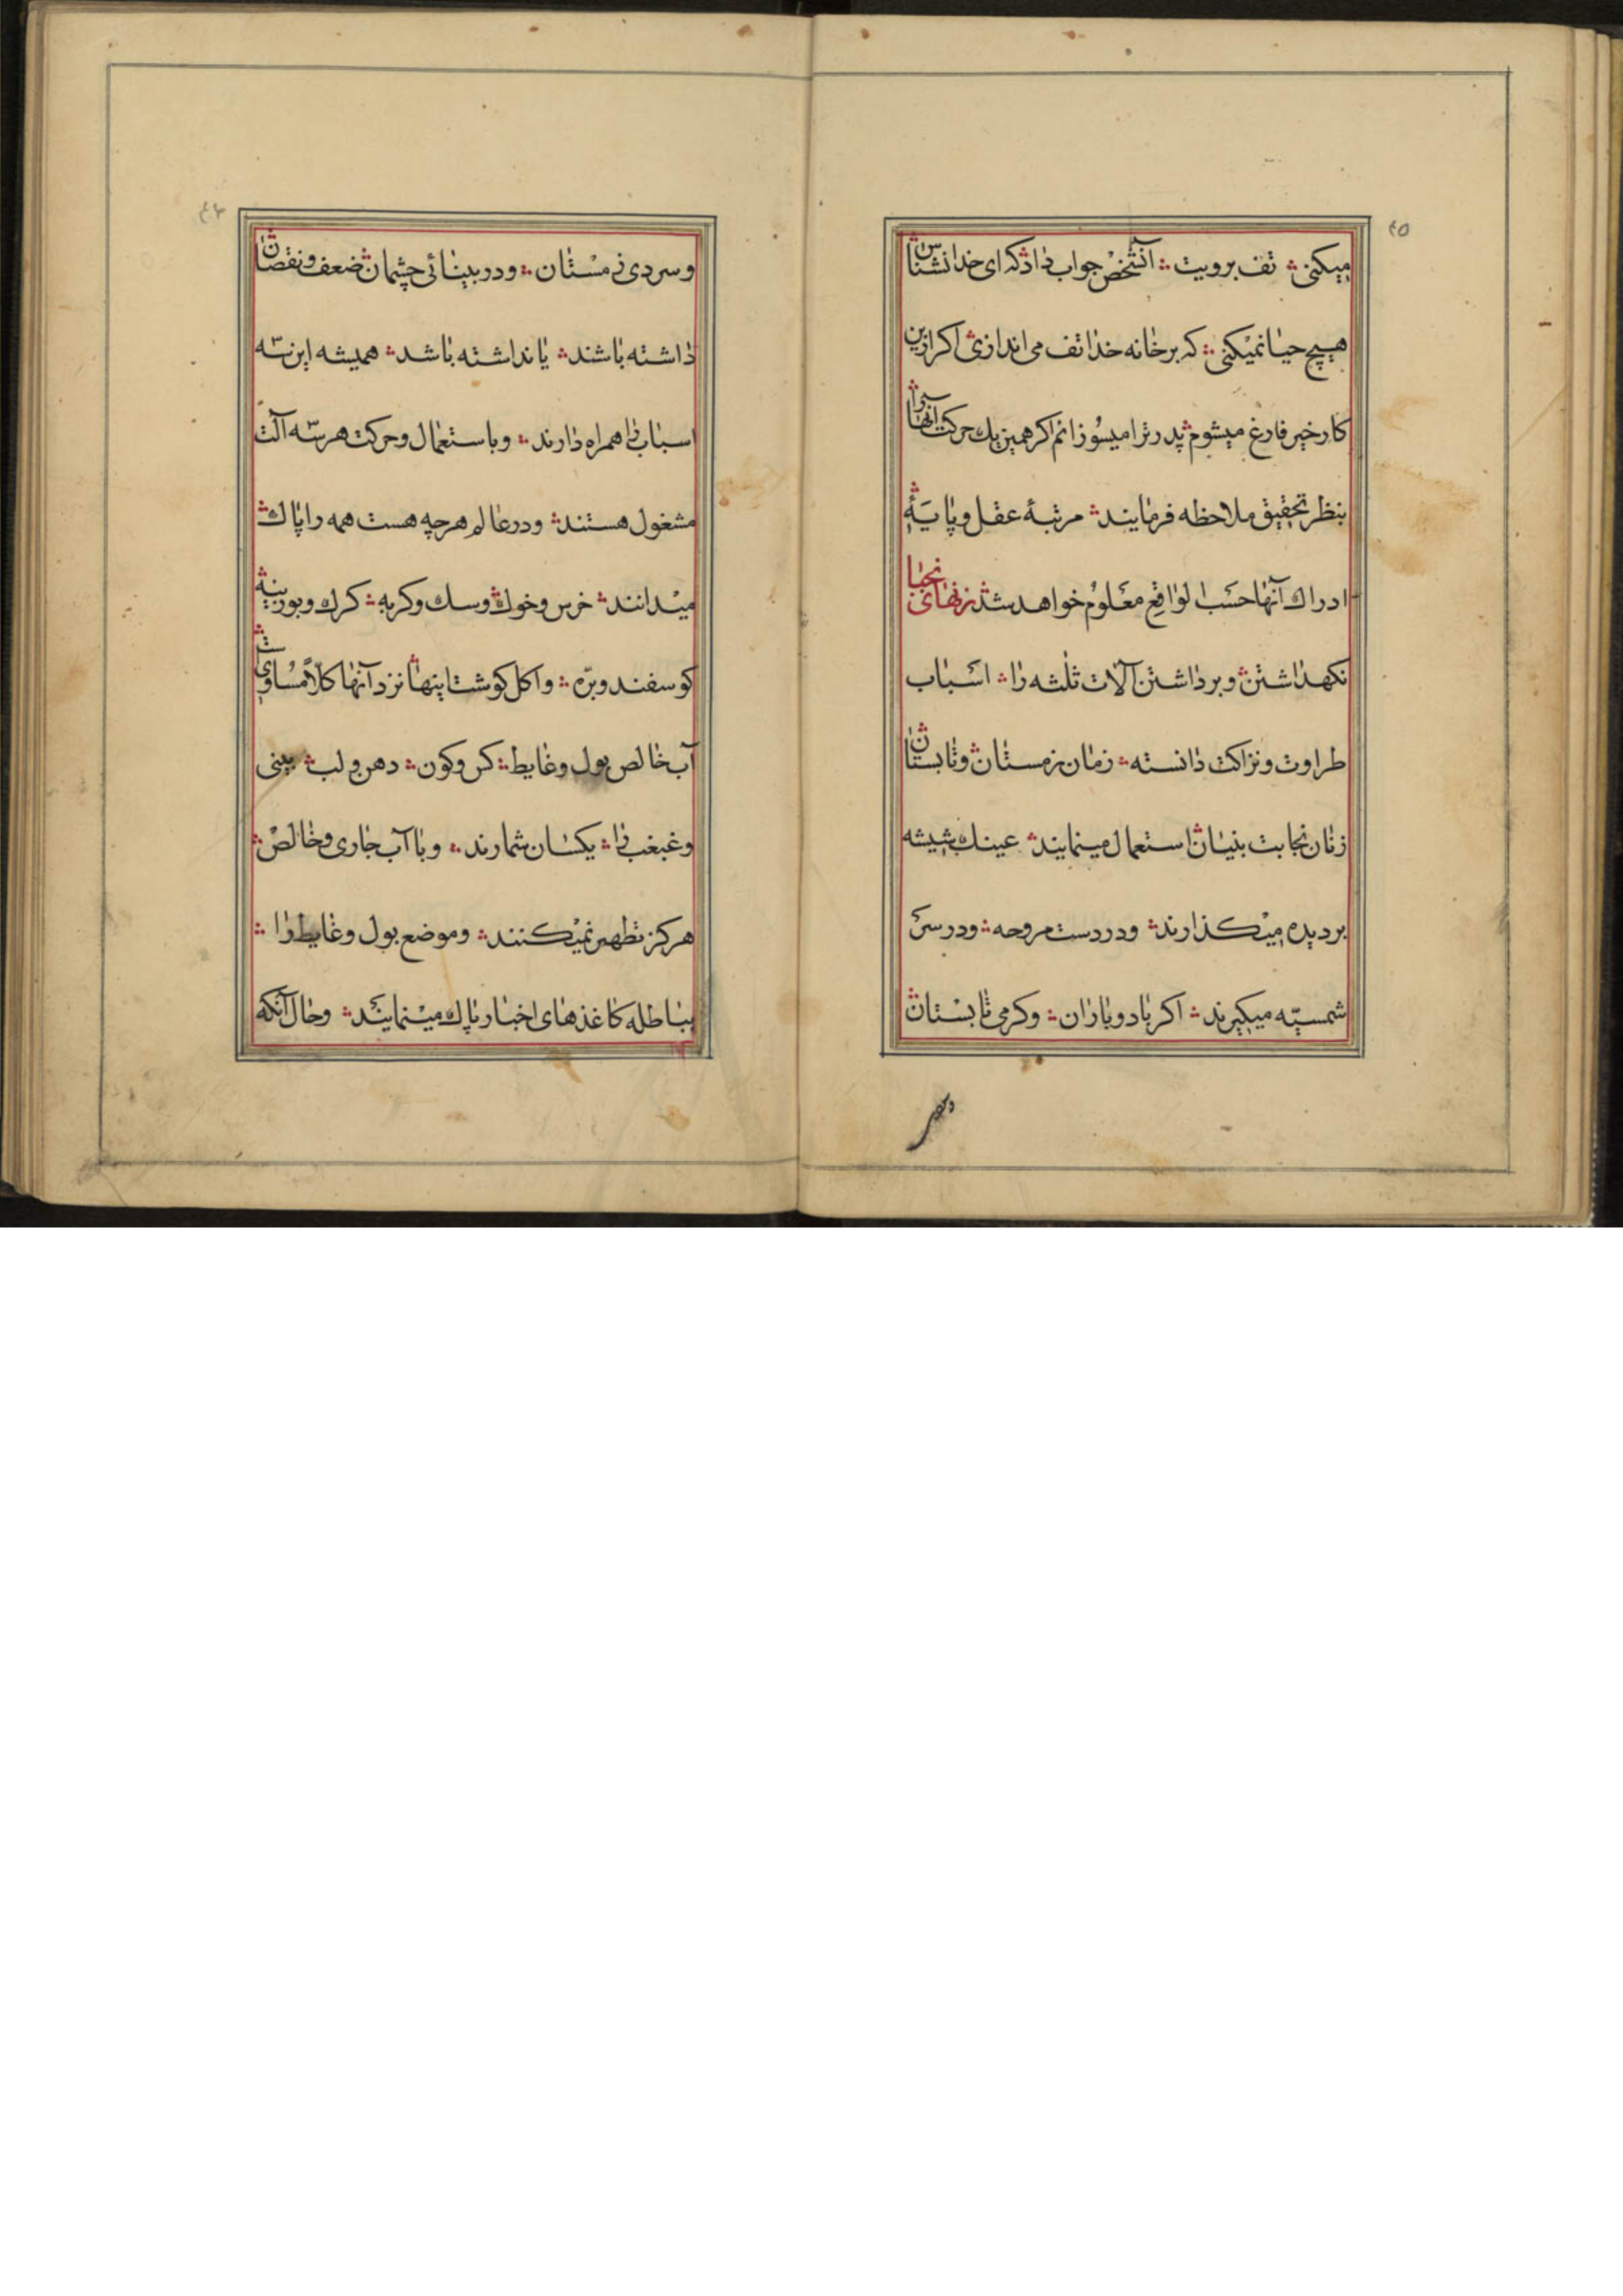 ٤٥
میکنی ؞ تف برویت ؞ آنشخص جواب داد که ای خدانشناس
هیچ حیا نمیکنی ؞ که بر خانه خدا تف می اندازی ؞ اکر ازین
کار خیر فارغ میشوم ؞ پدر ترا میسوزانم اکر همین یك حرکت آنها را
بنظر تحقیق ملاحظه فرمایند ؞ مرتبهٔ عقل و پایهٔ
ادراك آنها حسب الواقع معلوم خواهد شد ؞ زنهای نجبا
نکهداشتن ؞ و برداشتن آلات ثلثه را ؞ اسباب
طراوت و نزاکت دانسته ؞ زمان زمستان ؞ و تابستان
زنان نجابت بنیان ؞ استعمال مینمایند ؞ عینك شیشه
بر دیده میکذارند ؞ و در دست مروحه ؞ و در سر
شمسیّه میکیرند ؞ اکر باد و باران ؞ و کرمی تابستان
٤٦
و سردی زمستان ؞ و در بینائی چشمان ؞ ضعف و نقصان
داشته باشند ؞ یا نداشته باشد ؞ همیشه این سه
اسباب را همراه دارند ؞ و باستعمال و حرکت هر سه آلت
مشغول هستند ؞ و در عالم هر چه هست همه را پاك
میدانند ؞ خرس و خوك ؞ و سك و کربه ؞ کرك و بوزینه
کوسفند و برّه ؞ و اکل کوشت اینها ؞ نزد آنها کلاً مساوی
آب خالص بول و غایط ؞ کس و کون ؞ دهن و لب ؞ بینی
و غبغب را ؞ یکسان شمارند ؞ و با آب جاری و خالص ؞
هرکز تطهیر نمیکنند ؞ و موضع بول و غایط را ؞
بباطله کاغذهای اخبار پاك مینمایند ؞ و حال آنکه